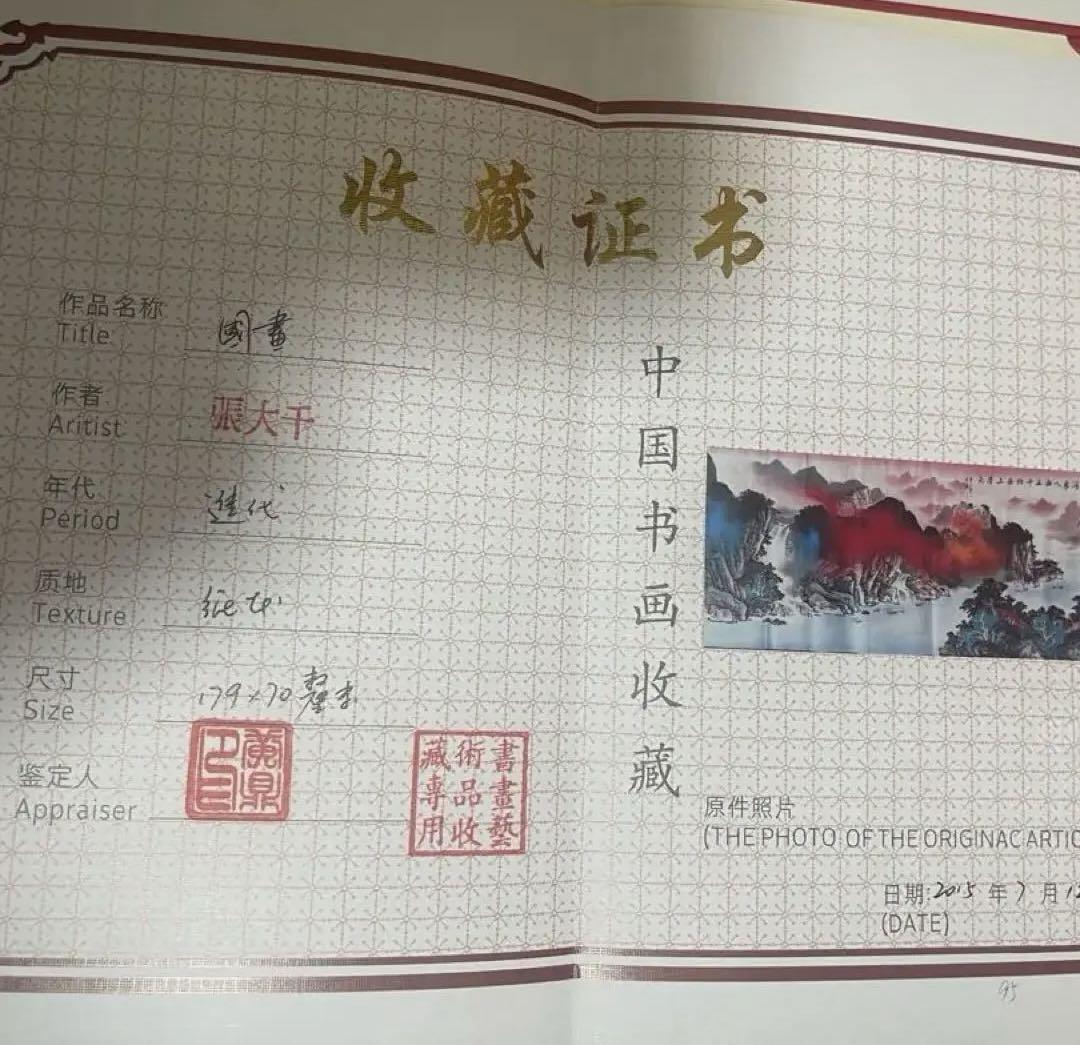 收藏证书
作品名称
Title
國畫
作者
Aritist
張大千
年代
Period
進代
质地
Texture
纸本
尺寸
Size
179×70釐米
鉴定人
Appraiser
書畫藝
術品收
藏專用
中国书画收藏
原件照片
(THE PHOTO OF THE ORIGINAC ARTIC
日期:2015年7月12
(DATE)
95